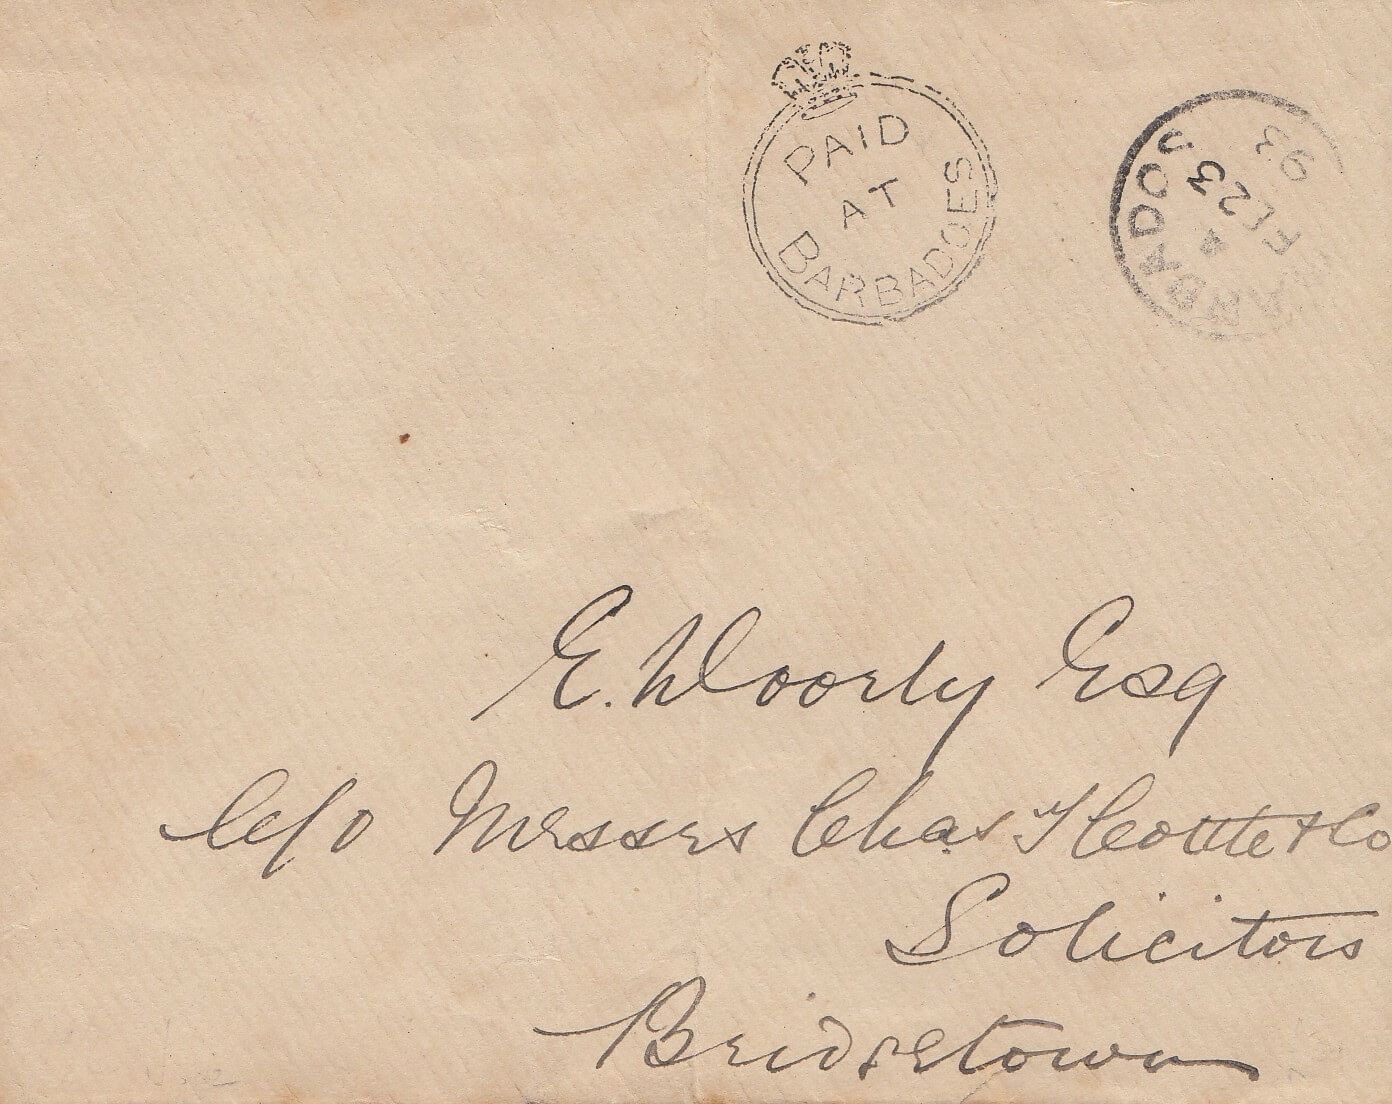 PAID
AT
BARBADOES
BARBADOS
FE 23
93
E. Doorly Esq
C/o Messrs Chas T Cottle & Co
Solicitors
Bridgetown